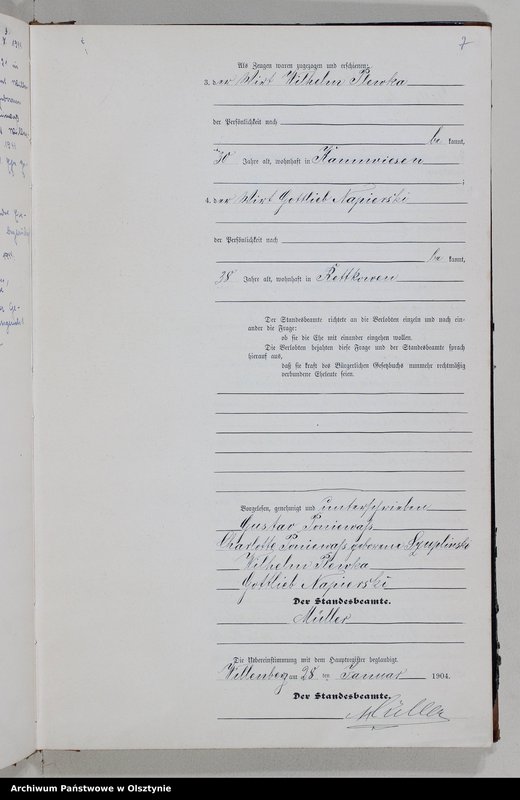 7
Als Zeugen waren zugezogen und erschienen:
3. der Wirt Wilhelm Plewka
der Persönlichkeit nach
be kannt,
30 Jahre alt, wohnhaft in Kannwiesen
;
4. der Wirt Gottlieb Napierski
der Persönlichkeit nach
be kannt,
38 Jahre alt, wohnhaft in Rettkowen
Der Standesbeamte richtete an die Verlobten einzeln und nach ein-
ander die Frage:
ob sie die Ehe mit einander eingehen wollen.
Die Verlobten bejahten diese Frage und der Standesbeamte sprach
hierauf aus,
daß sie kraft des Bürgerlichen Gesetzbuchs nunmehr rechtmäßig
verbundene Eheleute seien.
Vorgelesen, genehmigt und unterschrieben
Gustav Poniewaß
Charlotte Poniewaß geborene Szuplinski
Wilhelm Plewka
Gottlieb Napierski
Der Standesbeamte.
Müller
Die Uebereinstimmung mit dem Hauptregister beglaubigt.
Willenberg am 28 ten Januar 1904.
Der Standesbeamte.
Müller
Archiwum Państwowe w Olsztynie